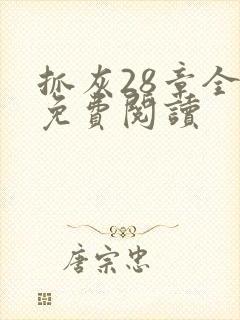 抓灰28章全
免費閱讀
唐宗忠